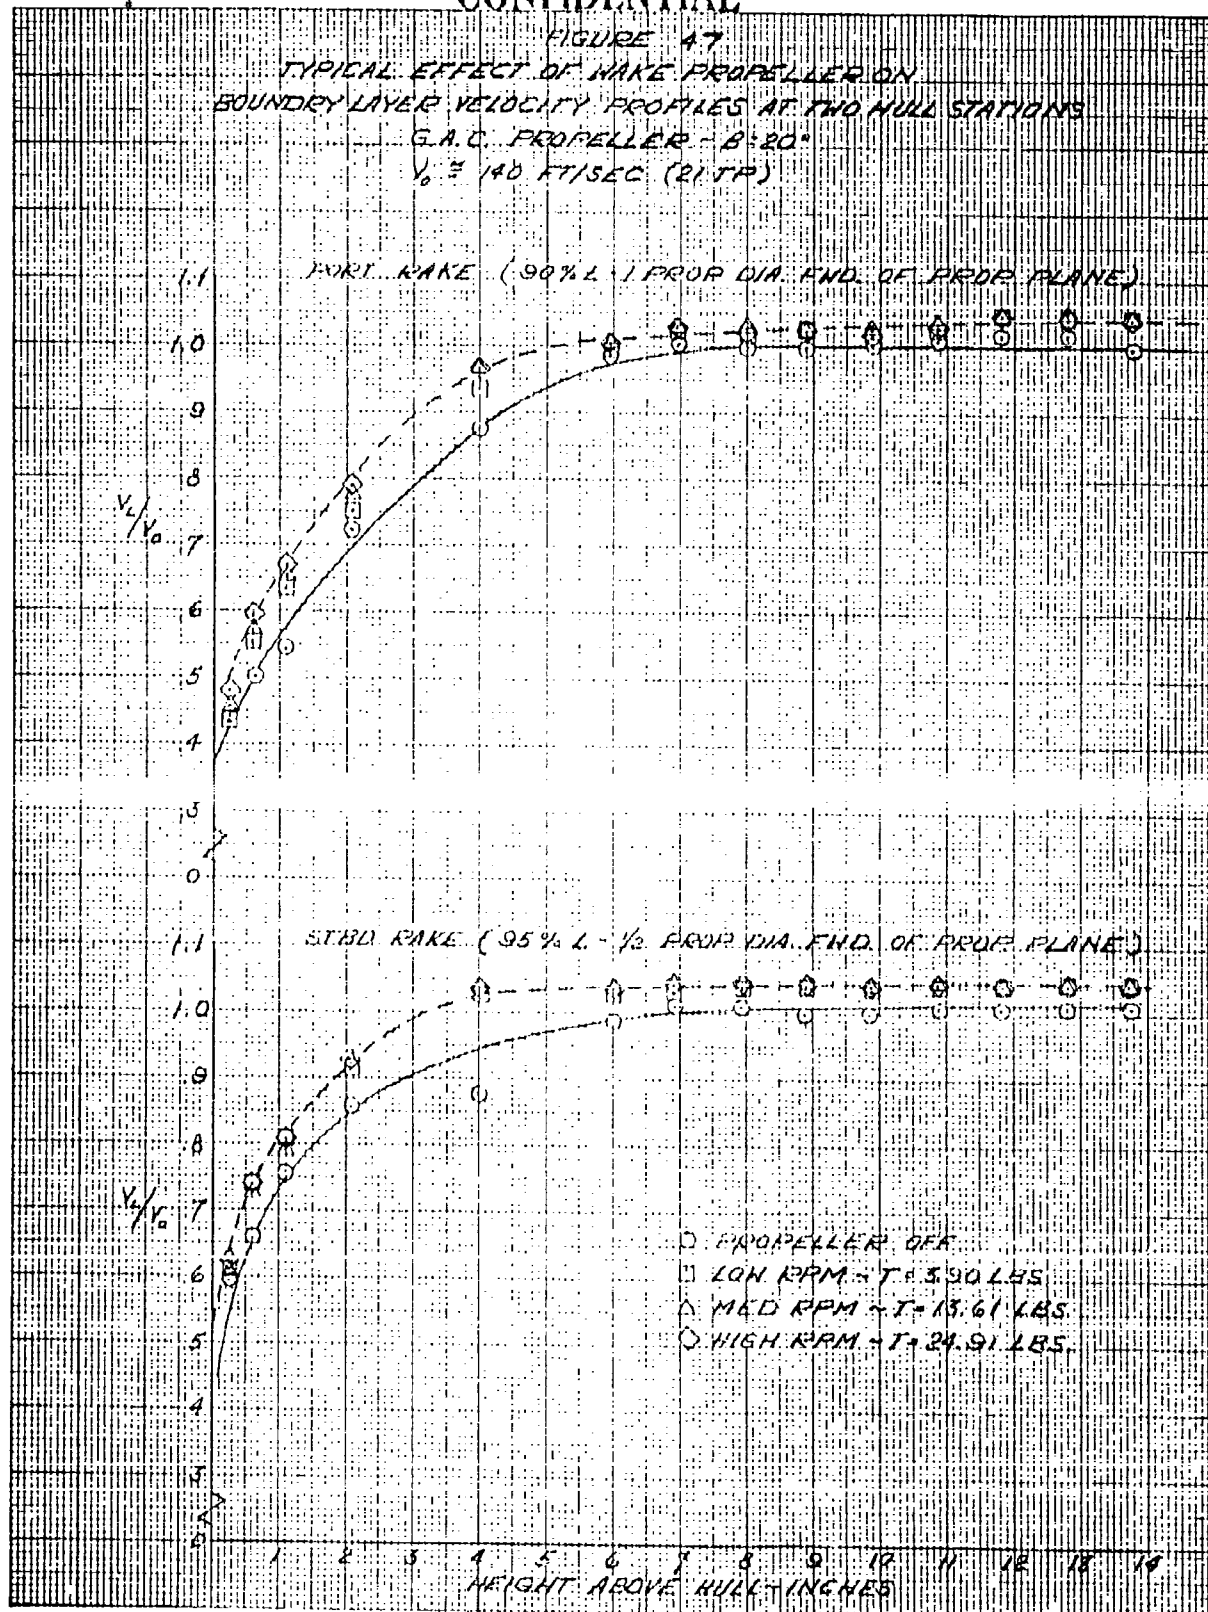 CONFIDENTIAL
FIGURE 47
TYPICAL EFFECT OF WAKE PROPELLER ON
BOUNDRY LAYER VELOCITY PROFILES AT TWO HULL STATIONS
G.A.C. PROPELLER - B=20°
V₀ ≅ 140 FT/SEC (21 TP)
PORT RAKE (90% L - 1 PROP DIA. FWD. OF PROP PLANE)
1.1
1.0
.9
.8
.7
.6
.5
.4
.3
0
VL/V₀
STBD RAKE (95% L - 1/2 PROP DIA. FWD. OF PROP PLANE)
1.1
1.0
.9
.8
.7
.6
.5
.4
.3
0
VL/V₀
PROPELLER OFF
LOW RPM - T=3.90 LBS
MED RPM - T=13.61 LBS
HIGH RPM - T=24.91 LBS.
1 2 3 4 5 6 7 8 9 10 11 12 13 14
HEIGHT ABOVE HULL-INCHES